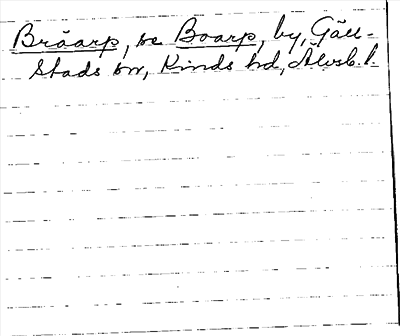 Bråarp, se Boarp, by, Gäll-
stads sn, Kinds hd, Älvsb. l.